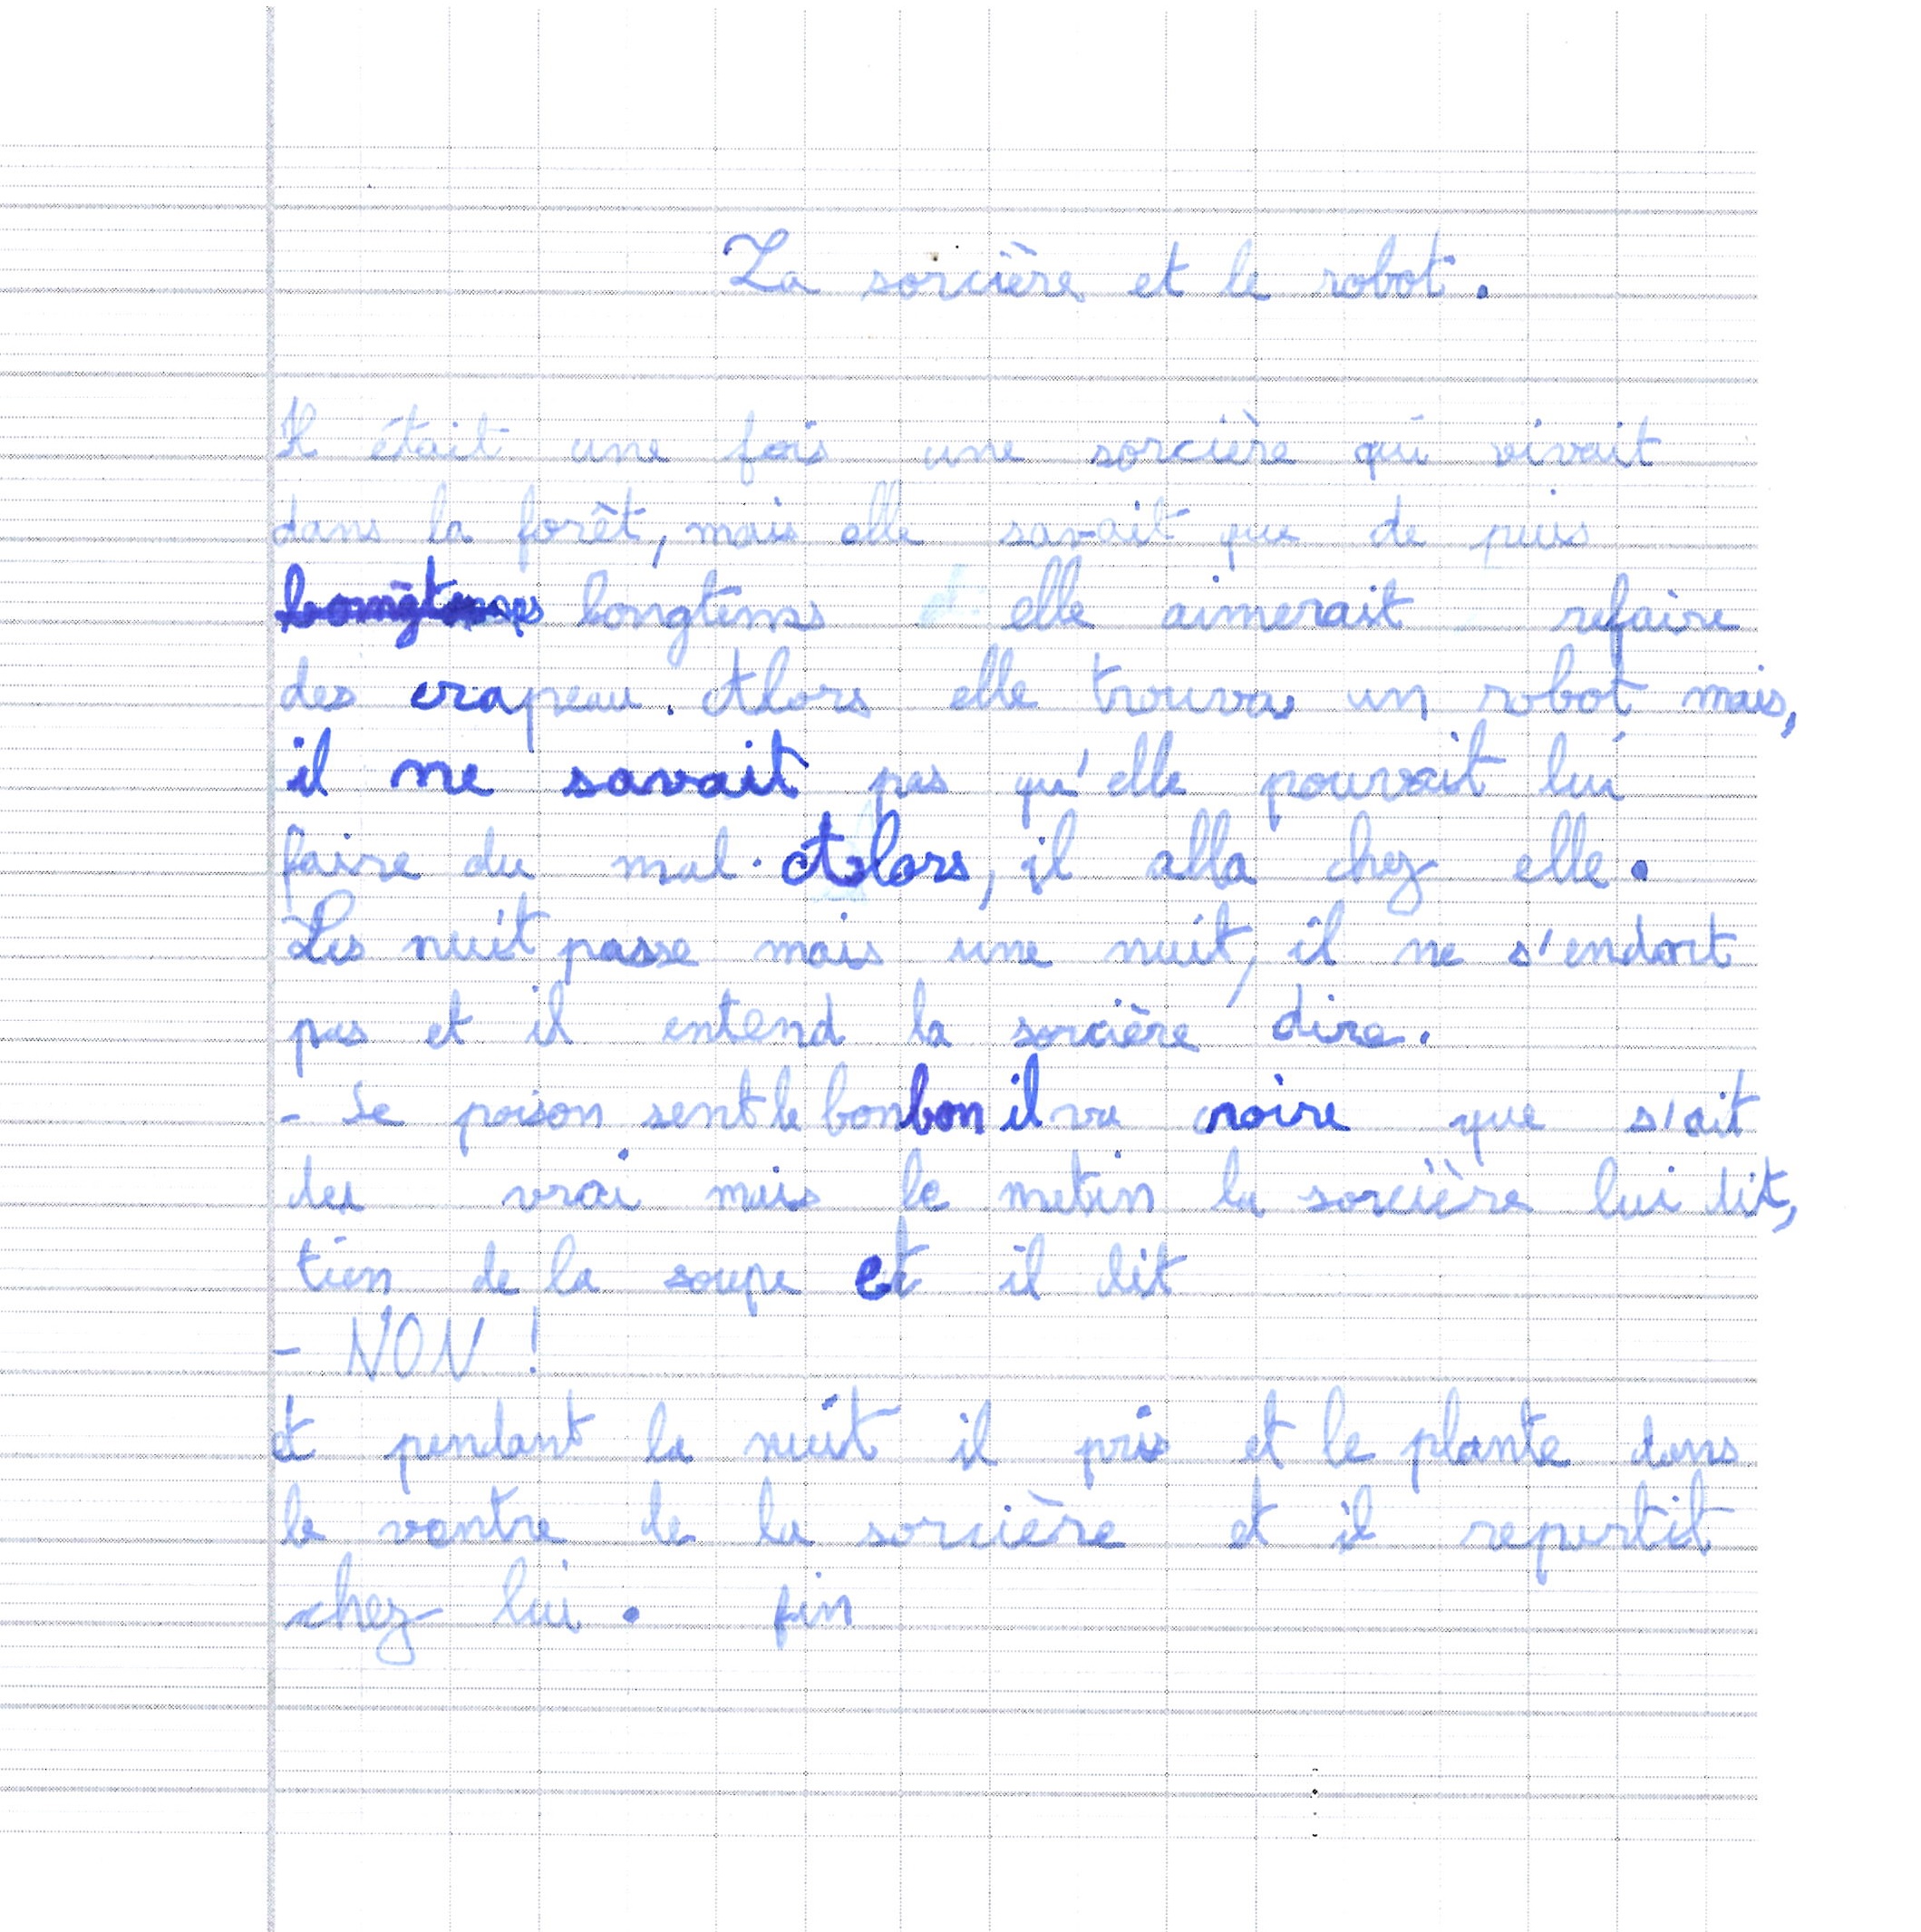 La sorcière et le robot.
Il était une fois une sorcière qui vivait
dans la forêt, mais elle savait que de puis
longtemps elle aimerait refaire
des crapeau. Alors elle trouva un robot mais,
il ne savait pas qu'elle pouvait lui
faire du mal. Alors, il alla chez elle.
Les nuit passe mais une nuit, il ne s'endort
pas et il entend la sorcière dire.
- Le poison sent le bonbon il va croire que s'ait
du vrai mais le matin la sorcière lui dit,
tien de la soupe et il dit
- NON !
et pendant la nuit il pris et le plante dans
le ventre de la sorcière et il repartit
chez lui. fin